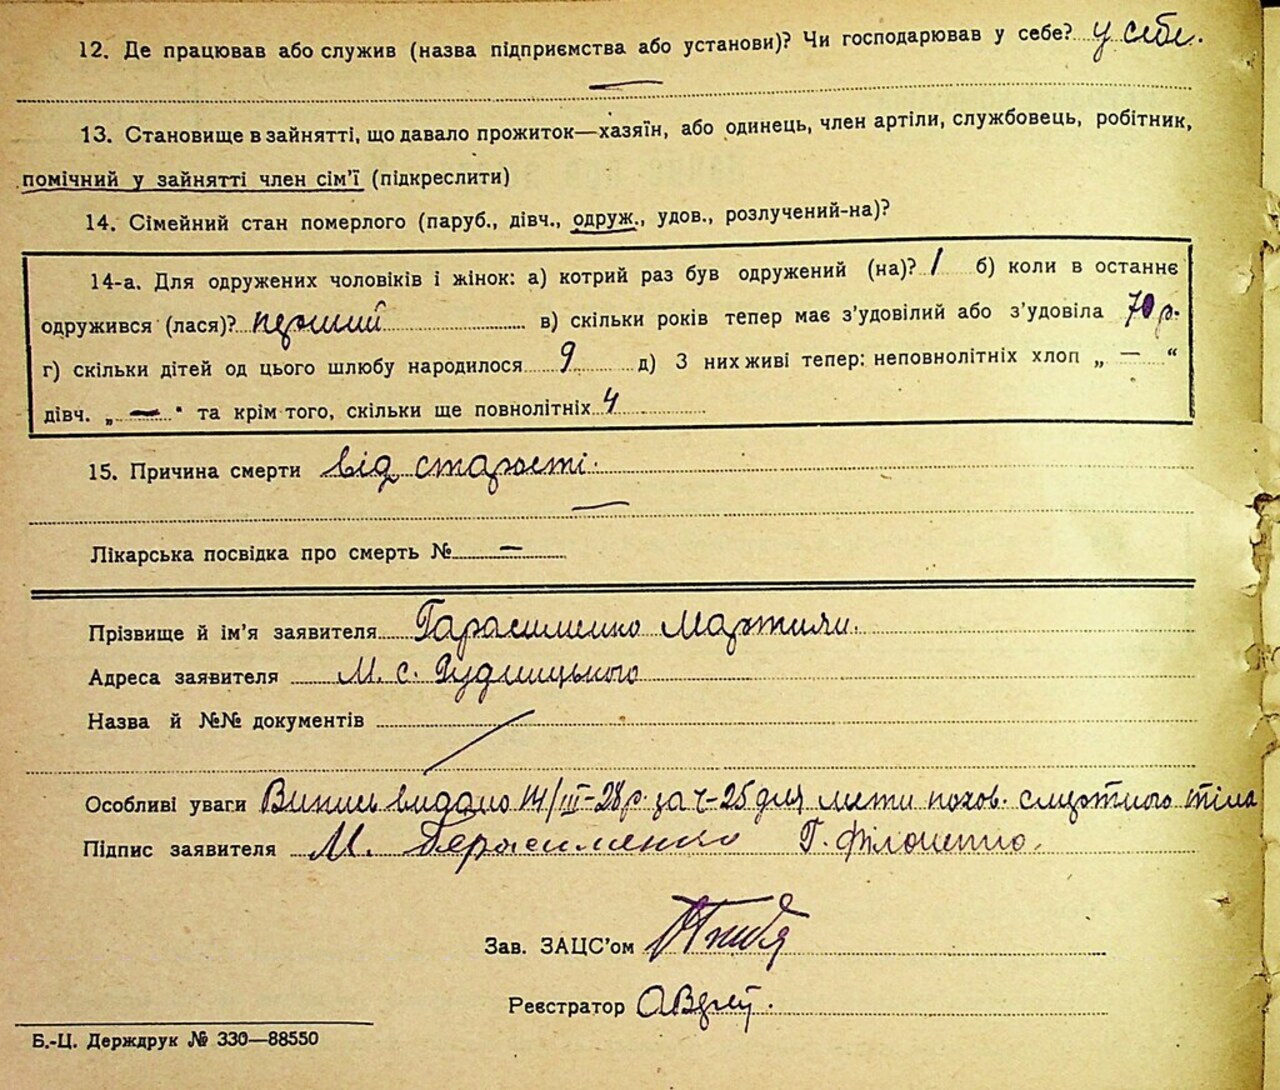 12. Де працював або служив (назва підприємства або установи)? Чи господарював у себе? у себе.
—
13. Становище в зайнятті, що давало прожиток—хазяїн, або одинець, член артіли, службовець, робітник,
помічний у зайнятті член сім’ї (підкреслити)
14. Сімейний стан померлого (паруб., дівч., одруж., удов., розлучений-на)?
14-а. Для одружених чоловіків і жінок: а) котрий раз був одружений (на)? 1 б) коли в останнє
одружився (лася)? перший в) скільки років тепер має з’удовілий або з’удовіла 70 р.
г) скільки дітей од цього шлюбу народилося 9 д) З них живі тепер: неповнолітніх хлоп „ — “
дівч. „ — “ та крім того, скільки ще повнолітніх 4
15. Причина смерти від старости.
—
Лікарська посвідка про смерть № —
Прізвище й ім’я заявителя Гарасименко
Адреса заявителя М. с.
Назва й №№ документів
Особливі уваги Випись видано 14/III-28 р. за ч-25 для мети похов. смертного тіла
Підпис заявителя М. Герасименко Г.
Зав. ЗАЦС’ом
Реєстратор
Б.-Ц. Держдрук № 330—88550